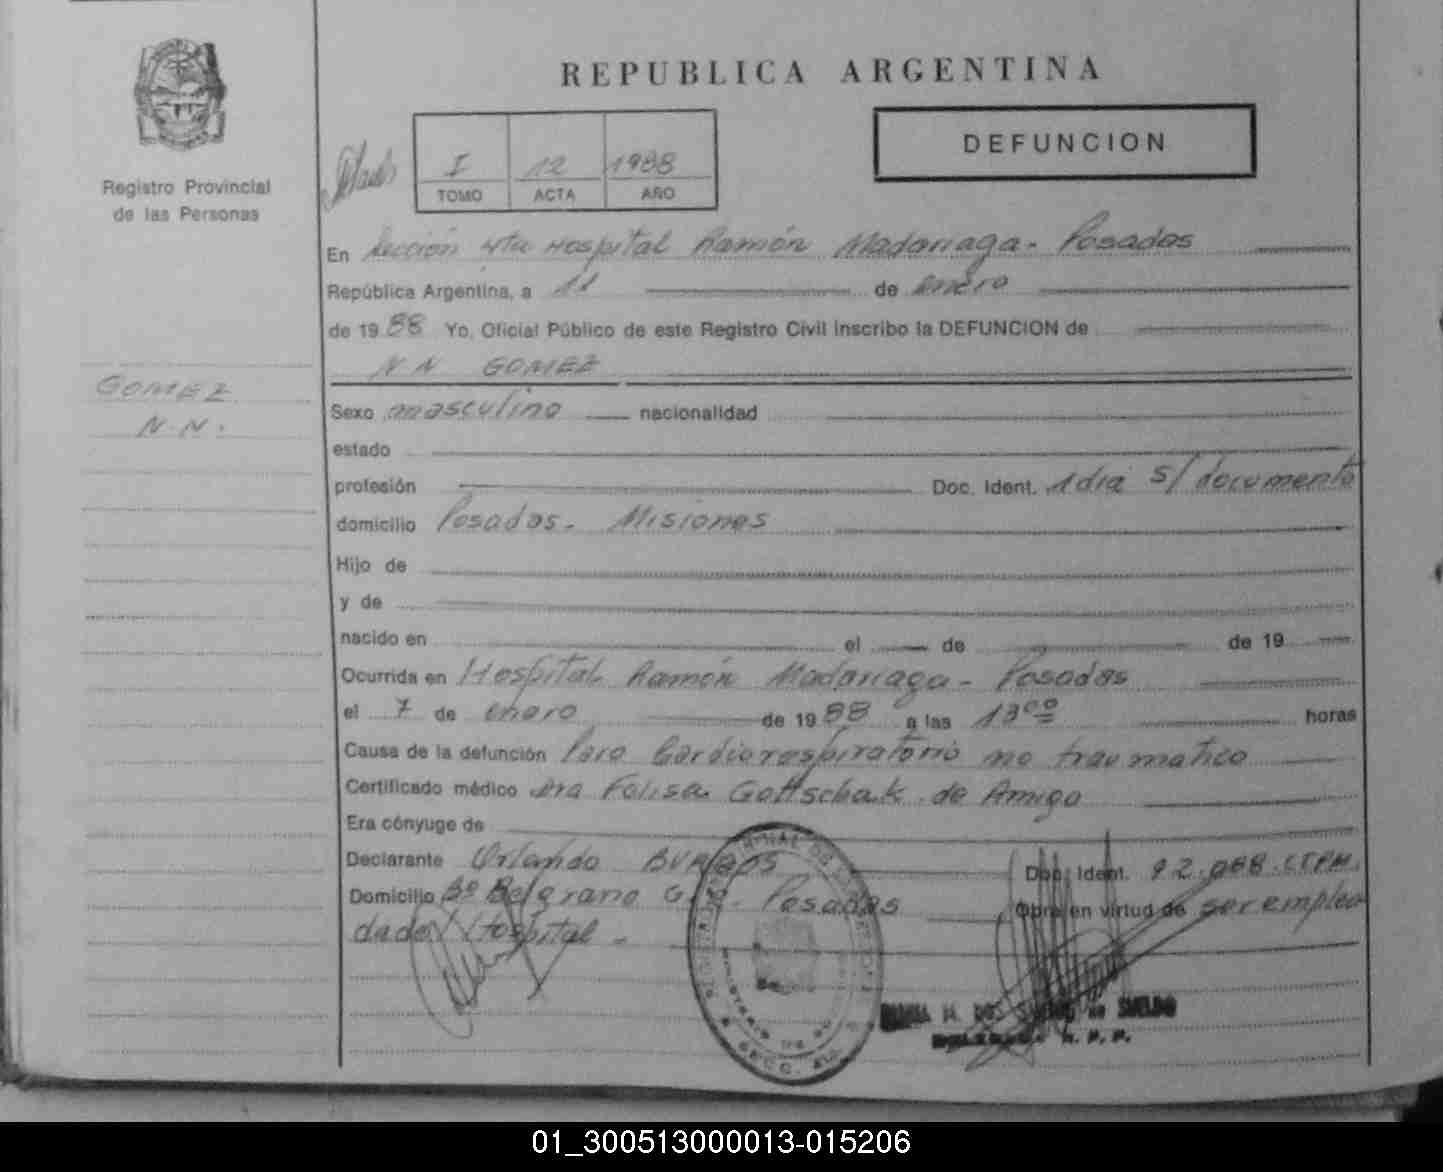 REPUBLICA ARGENTINA
DEFUNCION
Registro Provincial
de las Personas
I 12 1988
TOMO ACTA AÑO
En Sección 4ta Hospital Ramón Madariaga - Posadas
República Argentina, a 11 de enero
de 19 88 Yo, Oficial Público de este Registro Civil inscribo la DEFUNCION de
N N GOMEZ
GOMEZ
N.N.
Sexo masculino nacionalidad
estado
profesión Doc. Ident. 1 día s/ documento
domicilio Posadas - Misiones
Hijo de
y de
nacido en el de de 19
Ocurrida en Hospital Ramón Madariaga - Posadas
el 7 de enero de 19 88 a las 13 00 horas
Causa de la defunción Paro Cardiorespiratorio no traumatico
Certificado médico Dra Gottschalk de Amigo
Era cónyuge de
Declarante Orlando BURGOS Doc. Ident. 92.088
Domicilio Bº Belgrano Posadas Obra en virtud de ser emplea
do Hospital -
01_300513000013-015206